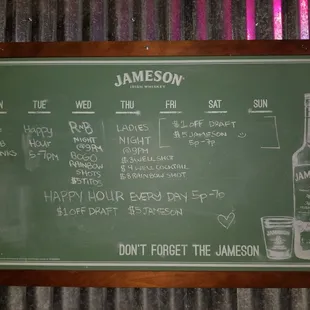 JAMESON
IRISH WHISKEY
TUE WED THU FRI SAT SUN
Happy
Hour
5-7pm
RnB
NIGHT
@9PM
BOGO
RAINBOW
SHOTS
$5 TITOS
LADIES
NIGHT
@9PM
$3 WELL SHOT
$4 WELL COCKTAIL
$8 RAINBOW SHOT
$1 OFF DRAFT
$5 JAMESON
5p-7p
HAPPY HOUR EVERY DAY 5p-7p
$1 OFF DRAFT $5 JAMESON
DON'T FORGET THE JAMESON